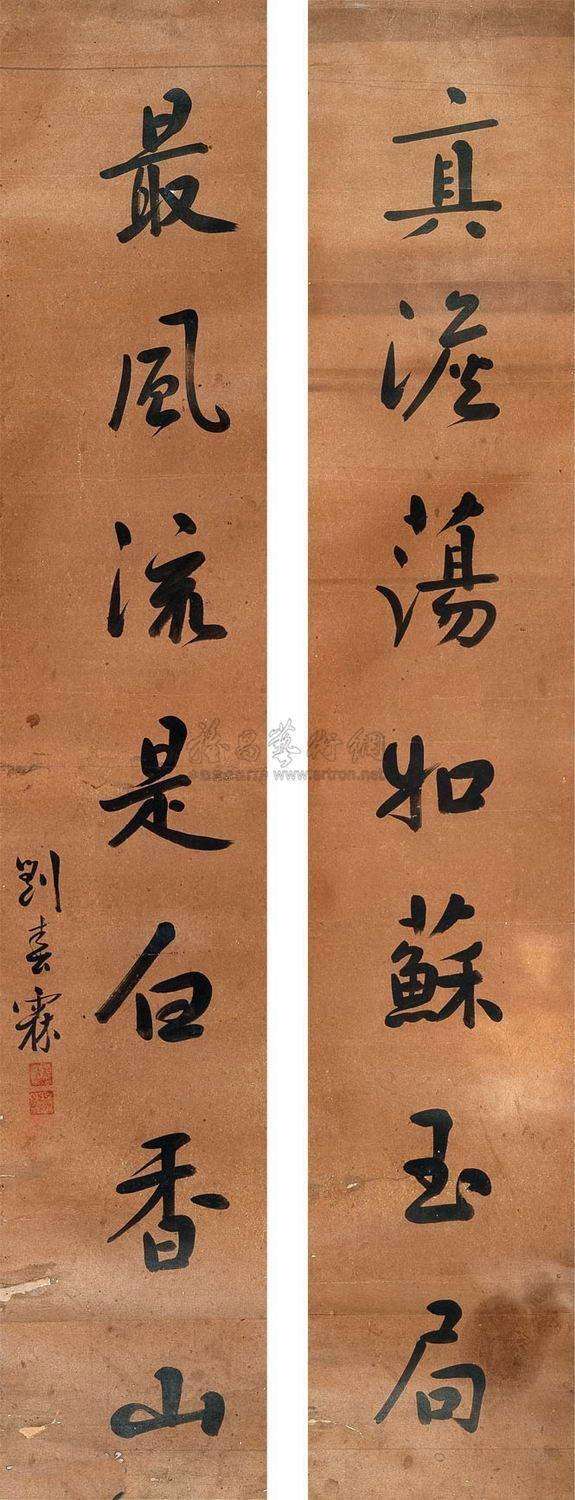 真淡蕩如蘇玉局
最風流是白香山
劉春霖
雅昌藝術網
www.artron.net